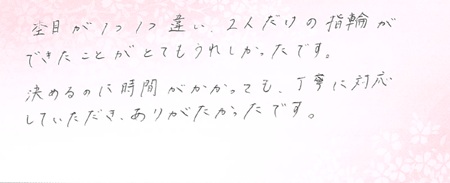 空目が1つ1つ違い、2人だけの指輪が
できたことがとてもうれしかったです。
決めるのに時間がかかっても、丁寧に対応
していただき、ありがたかったです。